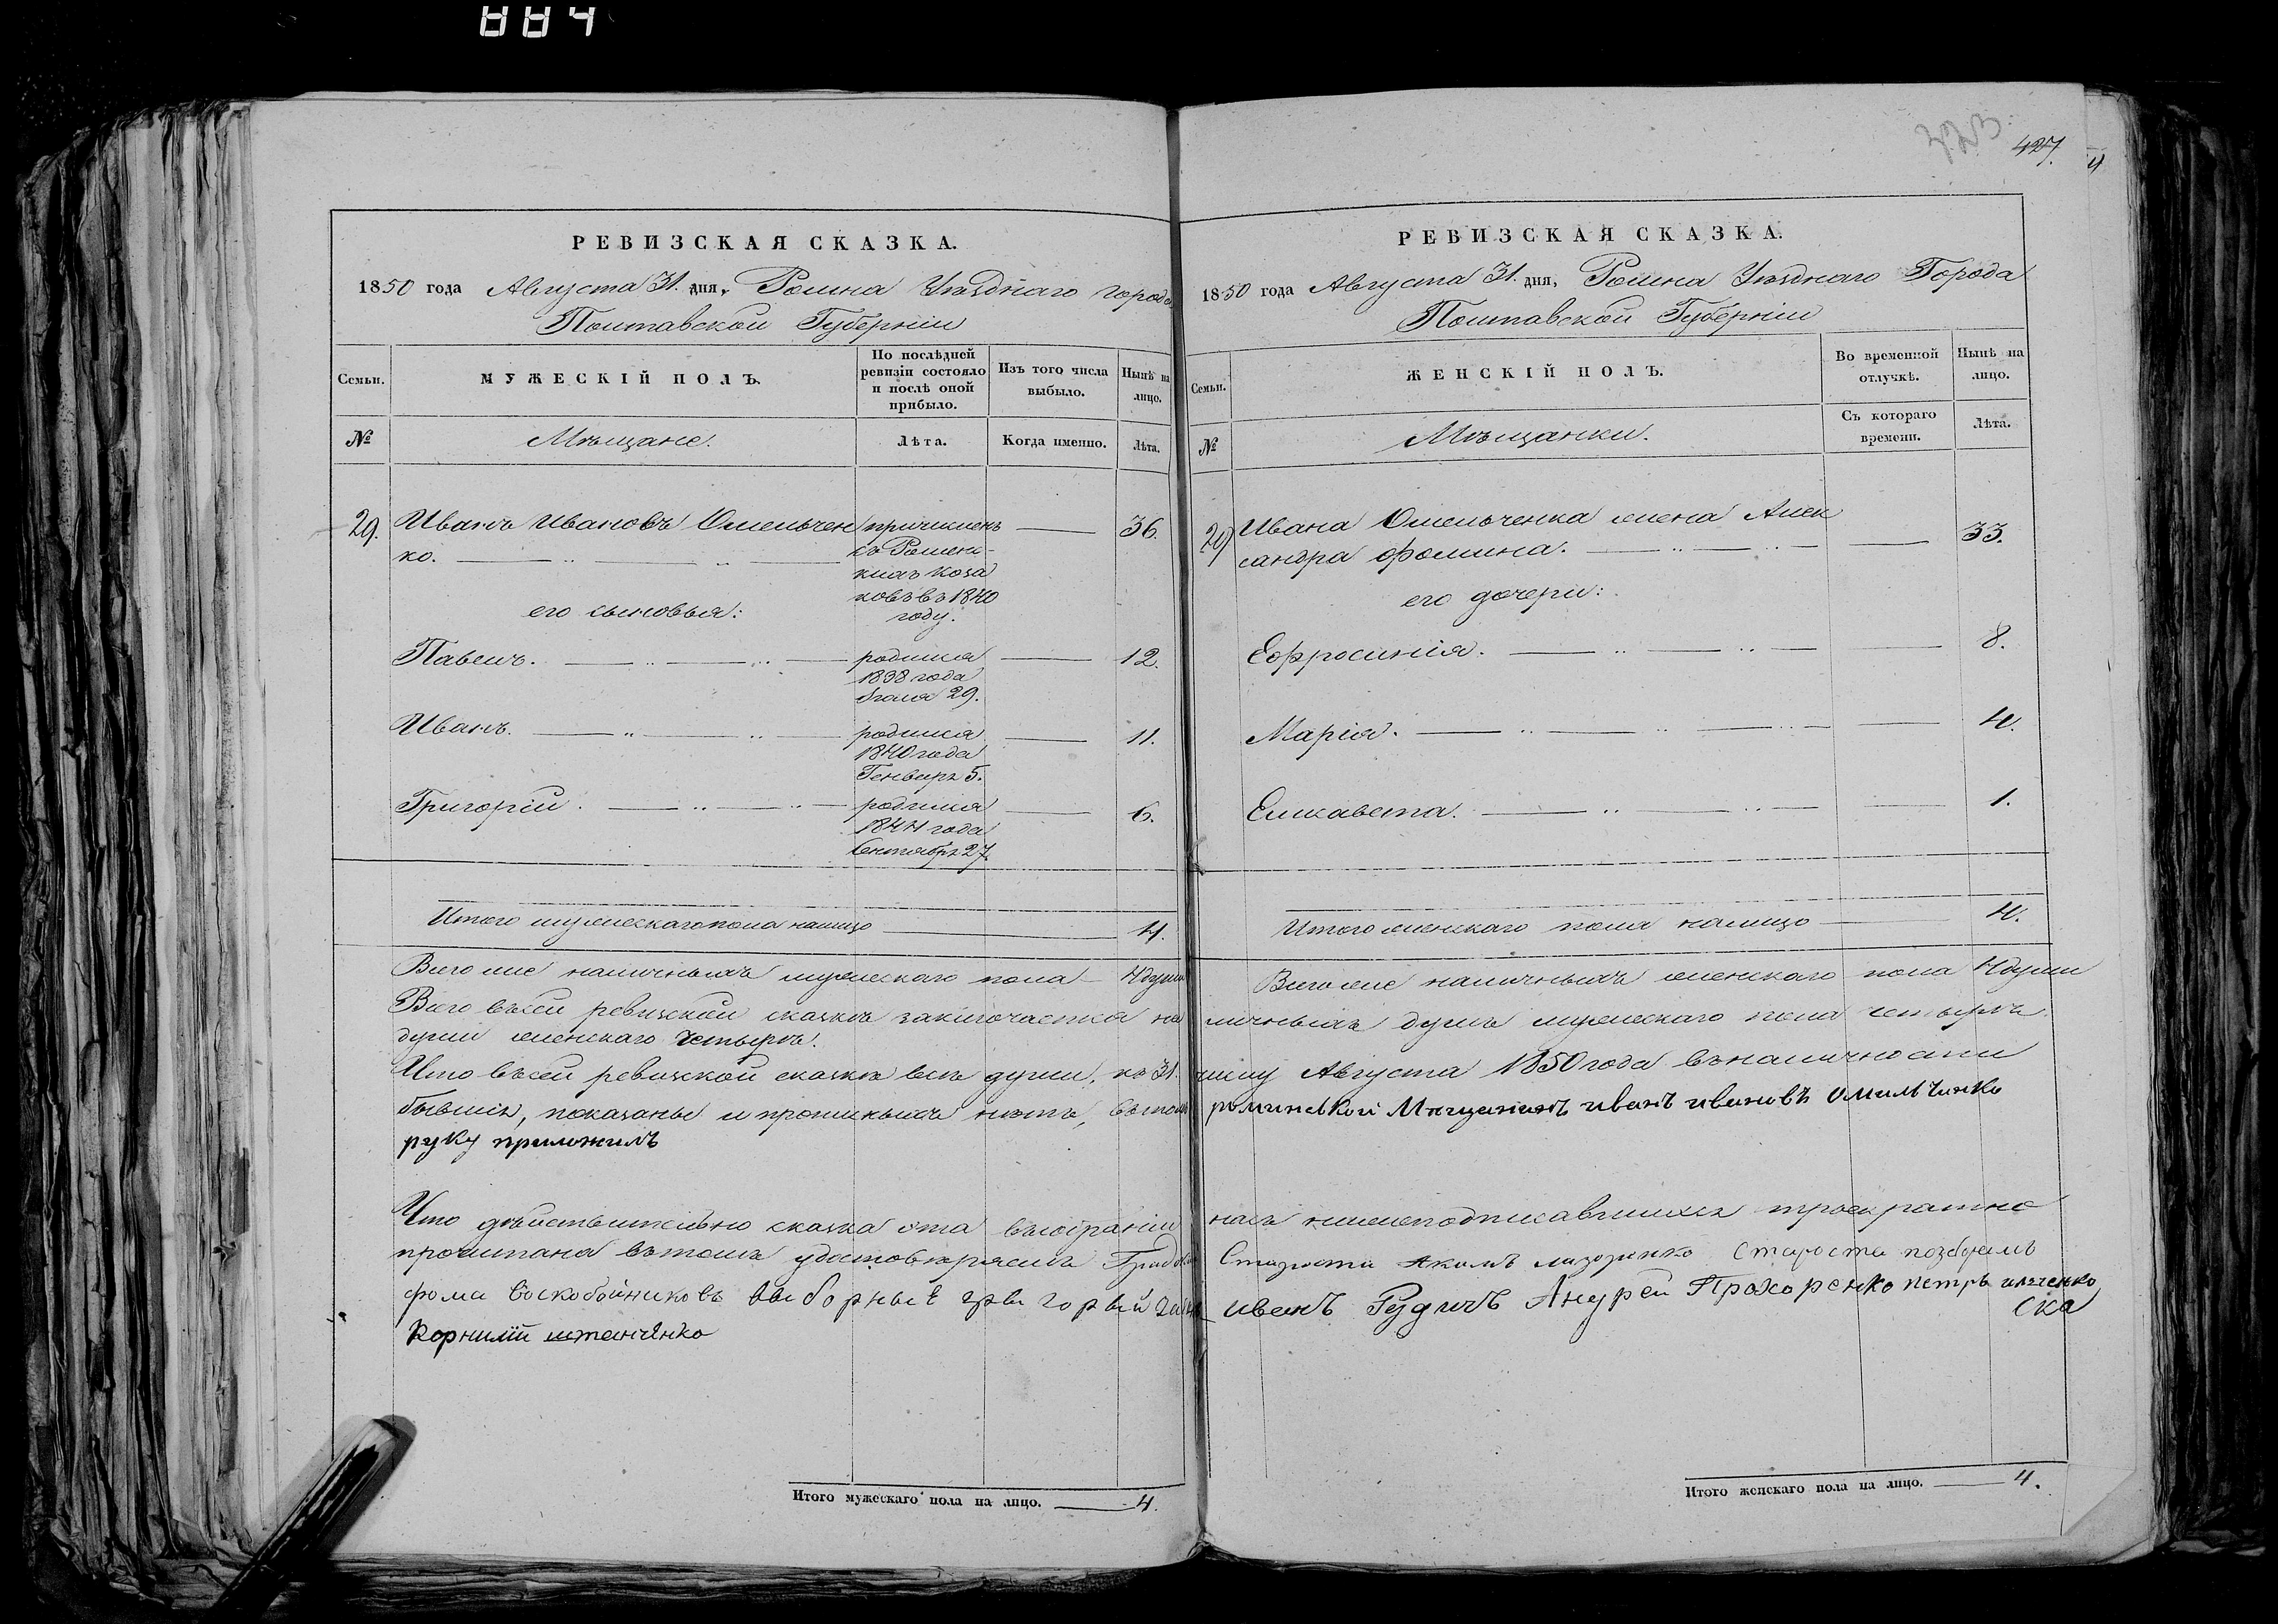 884
323
427.
РЕВИЗСКАЯ СКАЗКА.
1850 года Августа 31. дня, Ромна Уѣзднаго города
Полтавской Губерніи
Семьи.
МУЖЕСКІЙ ПОЛЪ.
По послѣдней ревизіи состояло и послѣ оной прибыло.
Изъ того числа выбыло.
Нынѣ на лицо.
№
Мѣщане.
Лѣта.
Когда именно.
Лѣта.
29. Иванъ Ивановъ Омельчен причисленъ 36.
ко. къ Ромен-
кихъ коза
ковъ въ 1840
его сыновья: году.
Павелъ. родился 12.
1838 года
29.
Иванъ. родился 11.
1840 года
Генваря 5.
Григорій. родился 6.
1844 года
Сентября 27.
Итого мужескаго пола налицо 4.
Всего же наличныхъ мужескаго пола 4 души
Всего въ сей ревизской сказкѣ заключается на
души женскаго четыре.
Что въ сей ревизской сказкѣ всѣ души, къ 31.
бывшія, показаны и прописныхъ нѣтъ, въ томъ
руку приложилъ
Что дѣйствительно сказка эта въ собраніи
прочитана въ томъ удостовѣряемъ
фома Воскобойниковъ выборные
Корнилій
Итого мужескаго пола на лицо. 4.
РЕВИЗСКАЯ СКАЗКА.
1850 года Августа 31. дня, Ромна Уѣзднаго Города
Полтавской Губерніи
Семьи.
ЖЕНСКІЙ ПОЛЪ.
Во временной отлучкѣ.
Нынѣ на лицо.
№
Мѣщанки.
Съ котораго времени.
Лѣта.
29 Ивана Омельченка жена Алек 33.
сандра Фомина.
его дочери:
Ефросинія. 8.
Марія. 4.
Елисавета. 1.
Итого женскаго пола налицо 4.
Всего же наличныхъ женскаго пола 4 души
личныхъ душъ мужескаго пола четыре
числу Августа 1850 года въ наличности
роминской Мищанинъ иванъ ивановъ Омильчинко
насъ нижеподписавшихся троекратно
Староста Акимъ Староста
иванъ Рудичъ Андрей Прохоренко петръ
ска
Итого женскаго пола на лицо. 4.